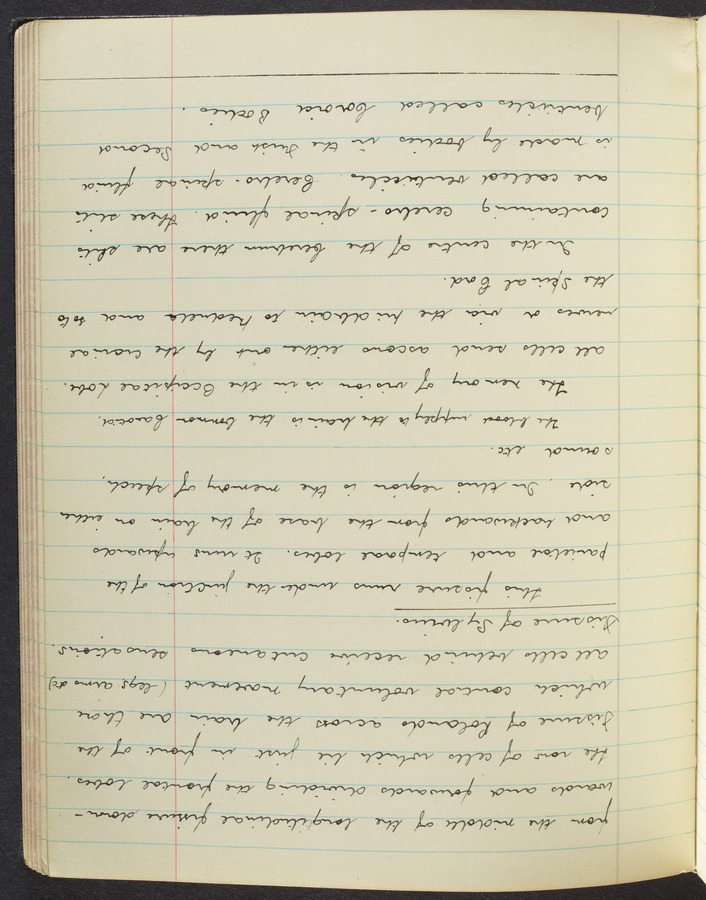 from the middle of the longitudinal fissure down-
wards and forwards dividing the frontal lobes.
the row of cells which lie just in front of the
Fissure of Rolando across the brain are those
which control voluntary movement (legs arms etc)
all cells behind receive cutaneous sensations.
Fissure of Sylvius.
This fissure runs under the junction of the
parietal and temporal lobes. It runs upwards
and backwards from the base of the brain on either
side. In this region is the memory of speech,
sound etc.
The blood supply to the brain is the Common Carotid.
The memory of vision is in the Occipital Lobe.
all cells send ascons either out by the cranial
nerves or via the midbrain to Medulla and so to
the Spinal Cord.
In the centre of the Cerebrum there are slits
containing cerebro-spinal fluid. These slits
are called ventricles. Cerebro-spinal fluid
is made by bodies in the First and Second
Ventricles called Coroid Bodies.